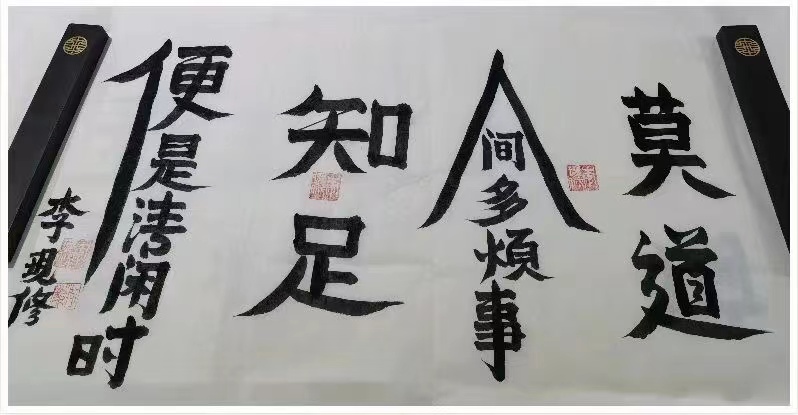 莫道
人间多烦事
知足
便是清闲时
李现修